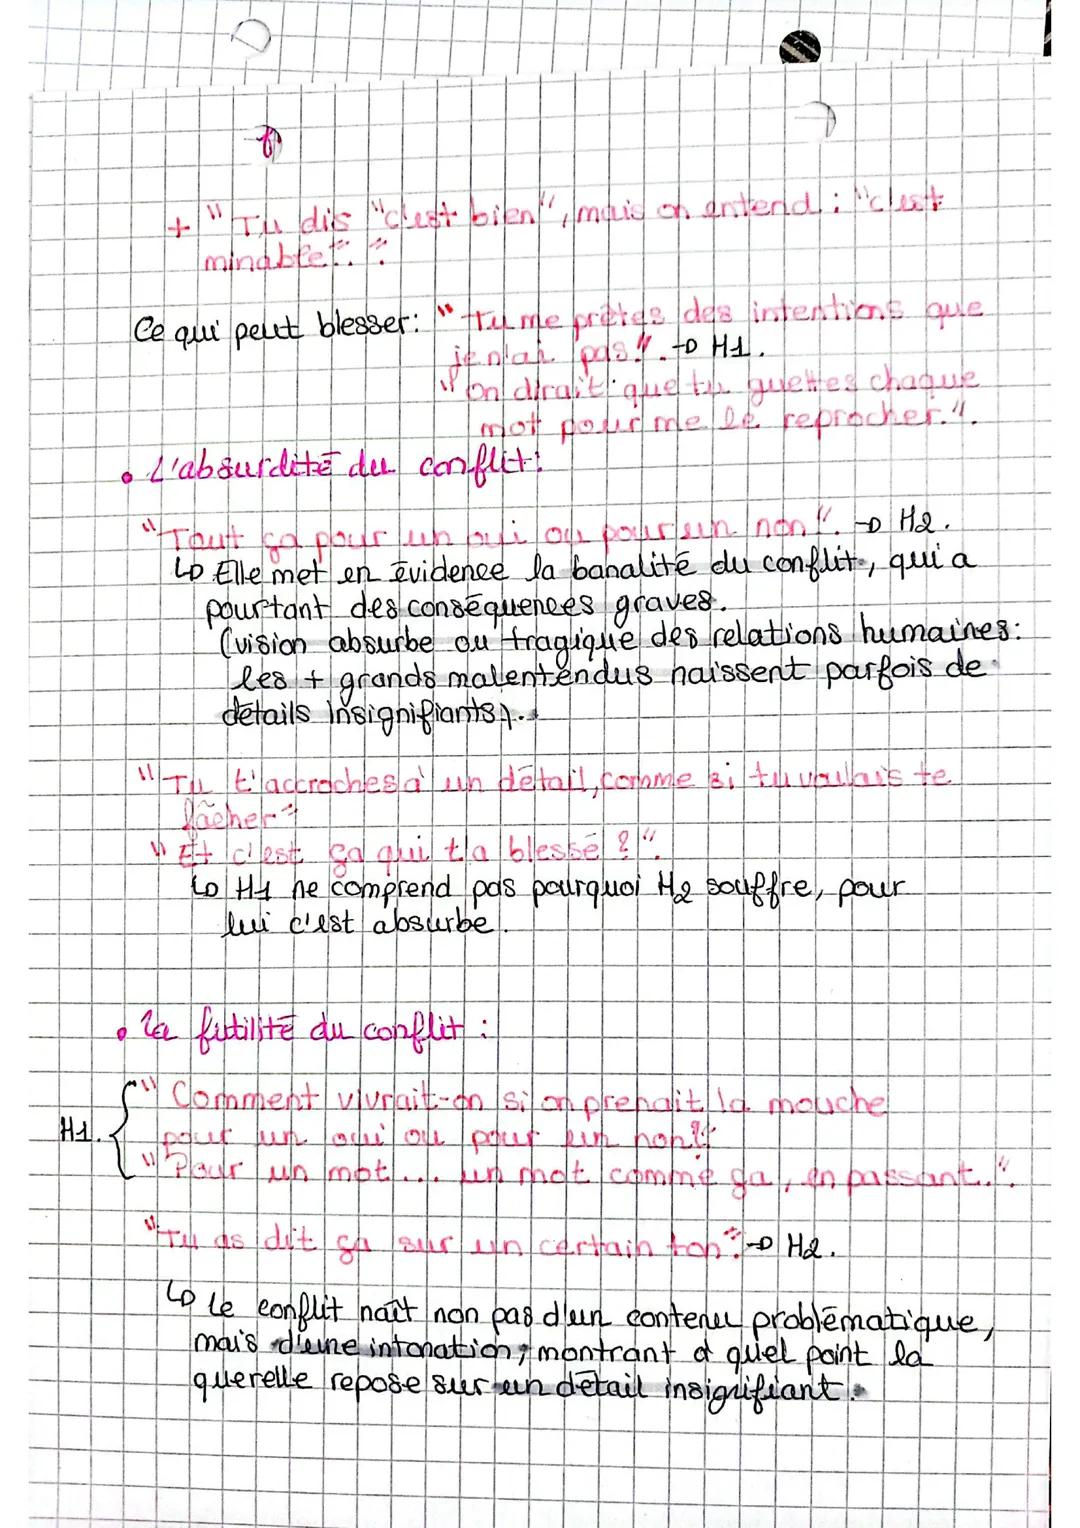 + "Tu dis "c'est bien", mais on entend : "c'est
minable"."
Ce qui peut blesser: "Tu me prêtes des intentions que
je n'ai pas". → H1.
"On dirait que tu guettes chaque
mot pour me le reprocher.".
• L'absurdité du conflit:
"Tout ça pour un oui ou pour un non!". → H2.
↳ Elle met en évidence la banalité du conflit, qui a
pourtant des conséquences graves.
(vision absurbe ou tragique des relations humaines:
les + grands malentendus naissent parfois de
détails insignifiants).
"Tu t'accroches à un détail, comme si tu voulais te
fâcher"
"Et c'est ça qui t'a blessé ?".
↳ H1 ne comprend pas pourquoi H2 souffre, pour
lui c'est absurbe.
• La futilité du conflit :
"Comment vivrait-on si on prenait la mouche
pour un oui ou pour un non?"
H1. "Pour un mot... un mot comme ça, en passant.".
"Tu as dit ça sur un certain ton". → H2.
↳ Le conflit naît non pas d'un contenu problématique,
mais d'une intonation, montrant à quel point la
querelle repose sur un détail insignifiant.